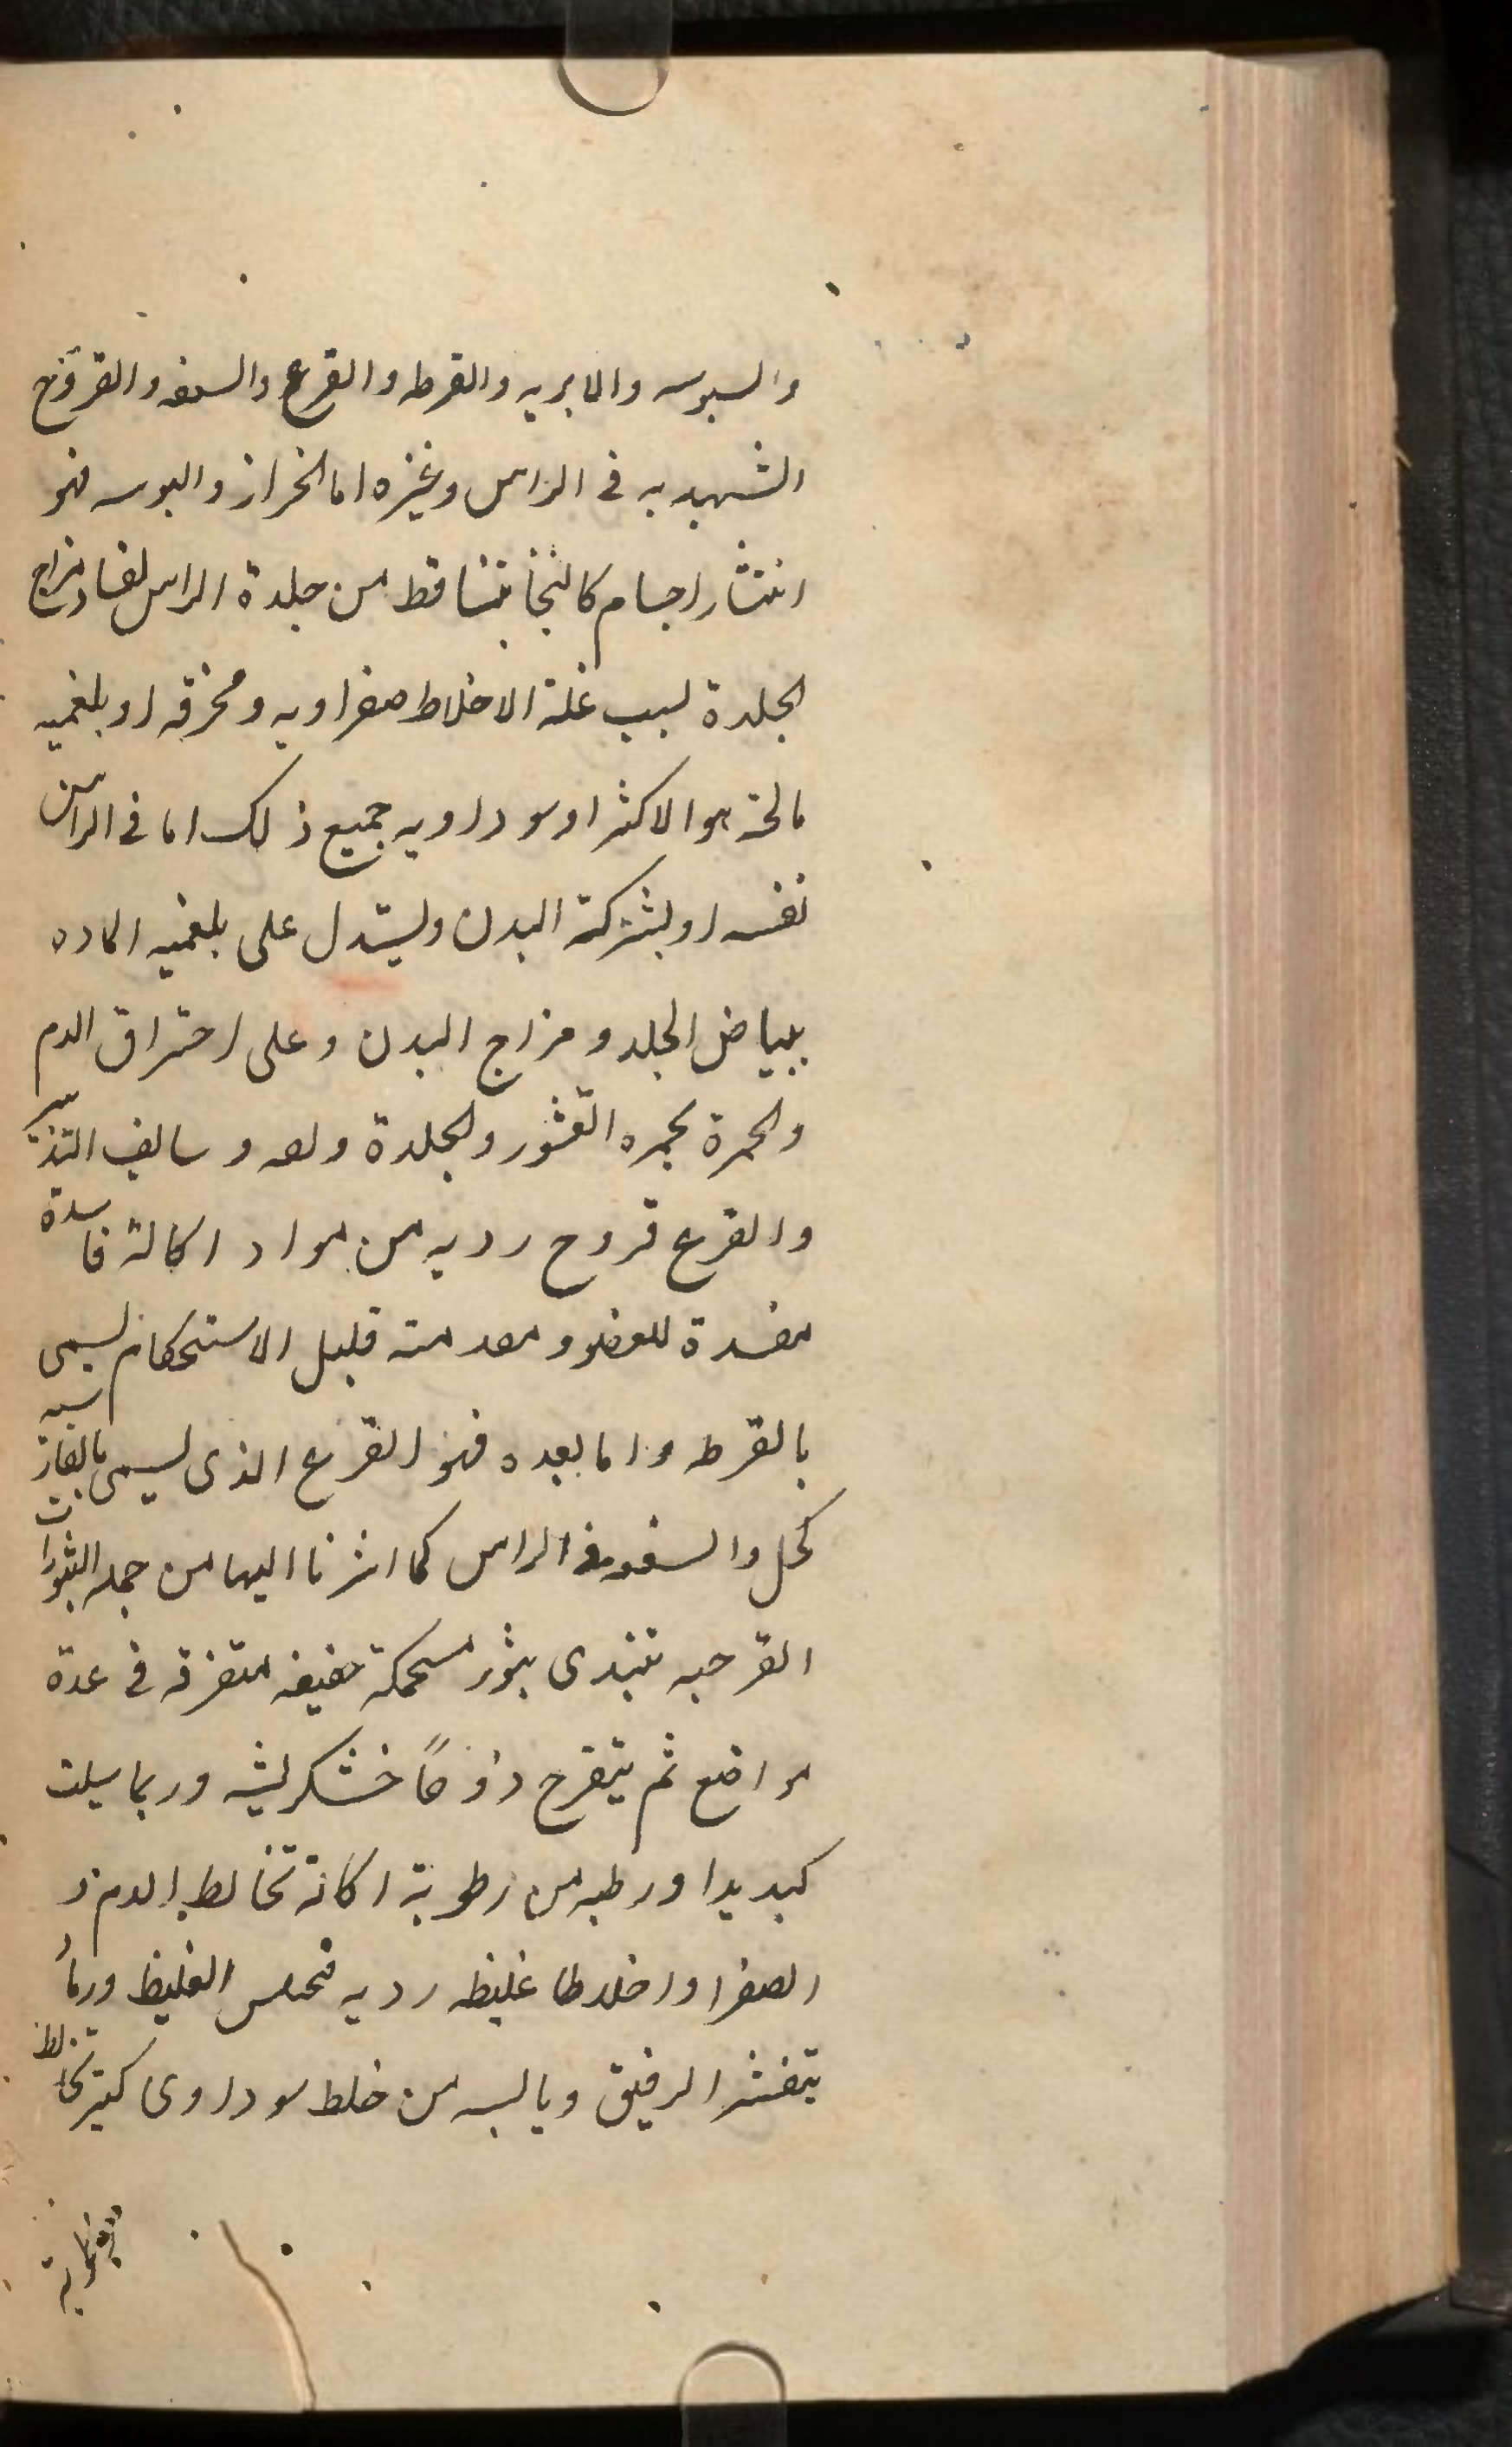 والسبوسه والابريه والقرطه والقرع والسعفه والقروح
الشهديه فى الراس وغيره اما الخراز والبوسه فهو
انتثار اجسام كالنخا يتساقط من جلدة الراس لفساد مزاج
الجلدة لسبب غلة الاخلاط صفراويه ومحرقه او بلغميه
مالحة هو الاكثر او سوداويه جميع ذلك اما فى الراس
نفسه او بشركة البدن ويستدل على بلغميه الماده
ببياض الجلد ومزاج البدن وعلى احتراق الدم
والحمرة بحمره القشور والجلدة وسالف التدبير
والقرع قروح رديه من مواد اكالة فاسدة
مفسدة للعضو قبل الاستحكام يسمى
بالقرطه واما بعده فهو القرع الذى يسمى بالفارسيه
كجل والسعفه فى الراس كما اشرنا اليها من جمله البثورات
القرحيه تبتدى ببثور مستحكة خفيفه متفرقه فى عدة
مواضع ثم يتقرح خشكريشه وربما سيلت
او رطبه من رطوبة اكالة تخالط الدم و
الصفرا واخلاطا غليظه رديه الغليظ وربما
الرقيق ويابسه من خلط سوداوى كثير تخالط